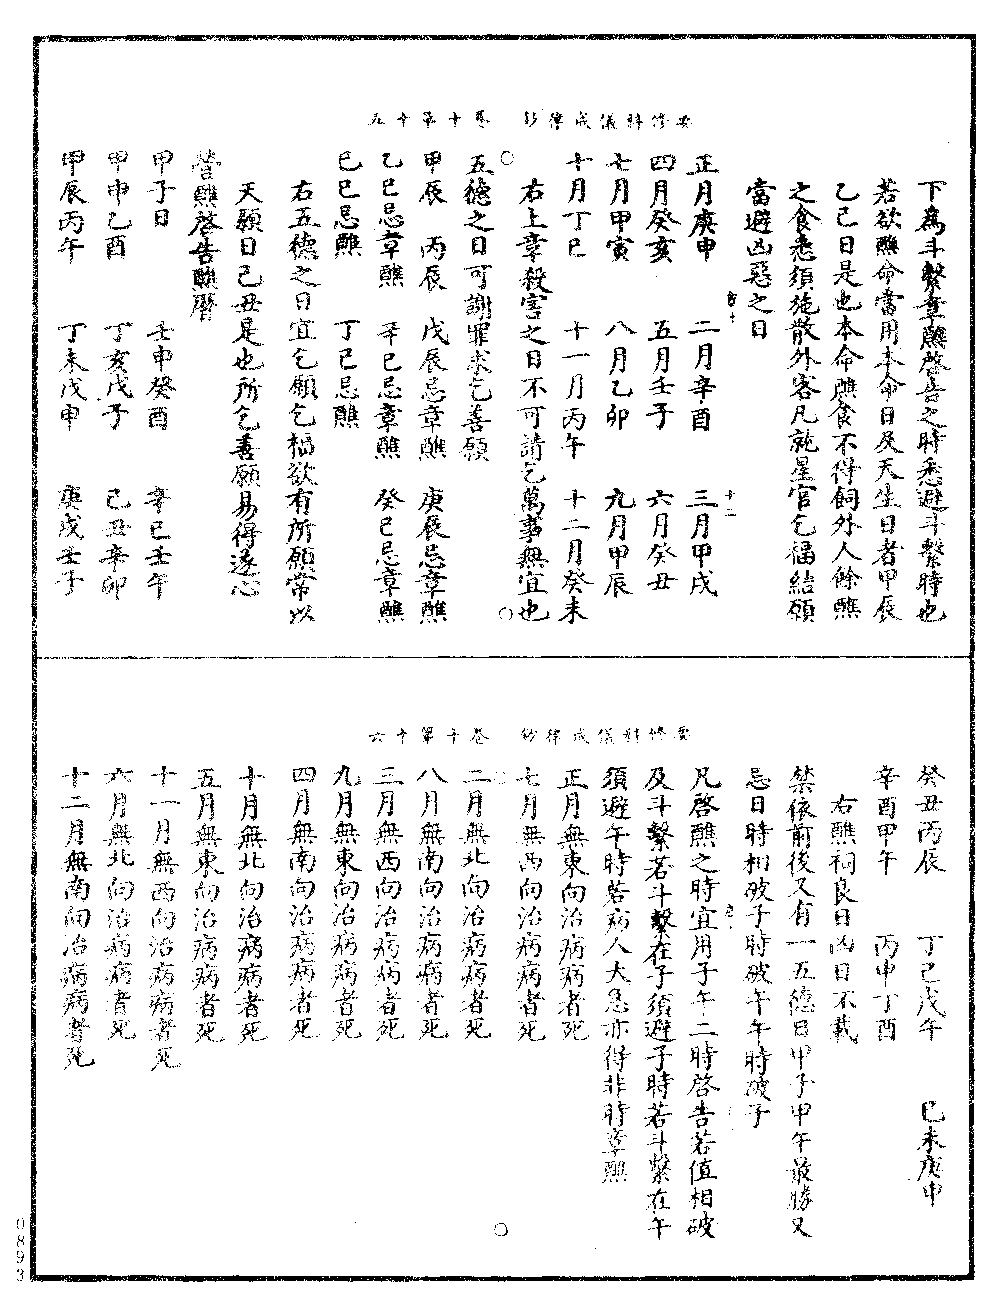 要修科儀戒律鈔　卷十第十五
下為斗繫章醮啓告之時悉避斗繫時也
若欲醮命當用本命日及天生日者甲辰
乙巳日是也本命醮食不得飼外人餘醮
之食悉須施散外客凡就星官乞福結願
當避凶惡之日
正月庚申　二月辛酉　三月甲戌
四月癸亥　五月壬子　六月癸丑
七月甲寅　八月乙卯　九月甲辰
十月丁巳　十一月丙午　十二月癸未
右上章殺害之日不可請乞萬事無宜也
五德之日可謝罪求乞善願
甲辰　丙辰　戊辰忌章醮　庚辰忌章醮
乙巳忌章醮　辛巳忌章醮　癸巳忌章醮
巳巳忌醮　丁巳忌醮
右五德之日宜乞願乞福欲有所願常以
天願日己丑是也所乞善願易得遂心
營醮啓告醮曆
甲子日　壬申癸酉　辛巳壬午
甲申乙酉　丁亥戊子　己丑辛卯
甲辰丙午　丁未戊申　庚戌壬子
要修科儀戒律鈔　卷十第十六
癸丑丙辰　丁巳戊午　巳未庚申
辛酉甲午　丙申丁酉
右醮祠良日凶日不載
禁依前後又有一五德日甲子甲午最勝又
忌日時相破子時破午午時破子
凡啓醮之時宜用子午二時啓告若值相破
及斗繫若斗繫在子須避子時若斗繫在午
須避午時若病人大急亦得非時章醮
正月無東向治病病者死
七月無西向治病病者死
二月無北向治病病者死
八月無南向治病病者死
三月無西向治病病者死
九月無東向治病病者死
四月無南向治病病者死
十月無北向治病病者死
五月無東向治病病者死
十一月無西向治病病者死
六月無北向治病病者死
十二月無南向治病病者死
0893